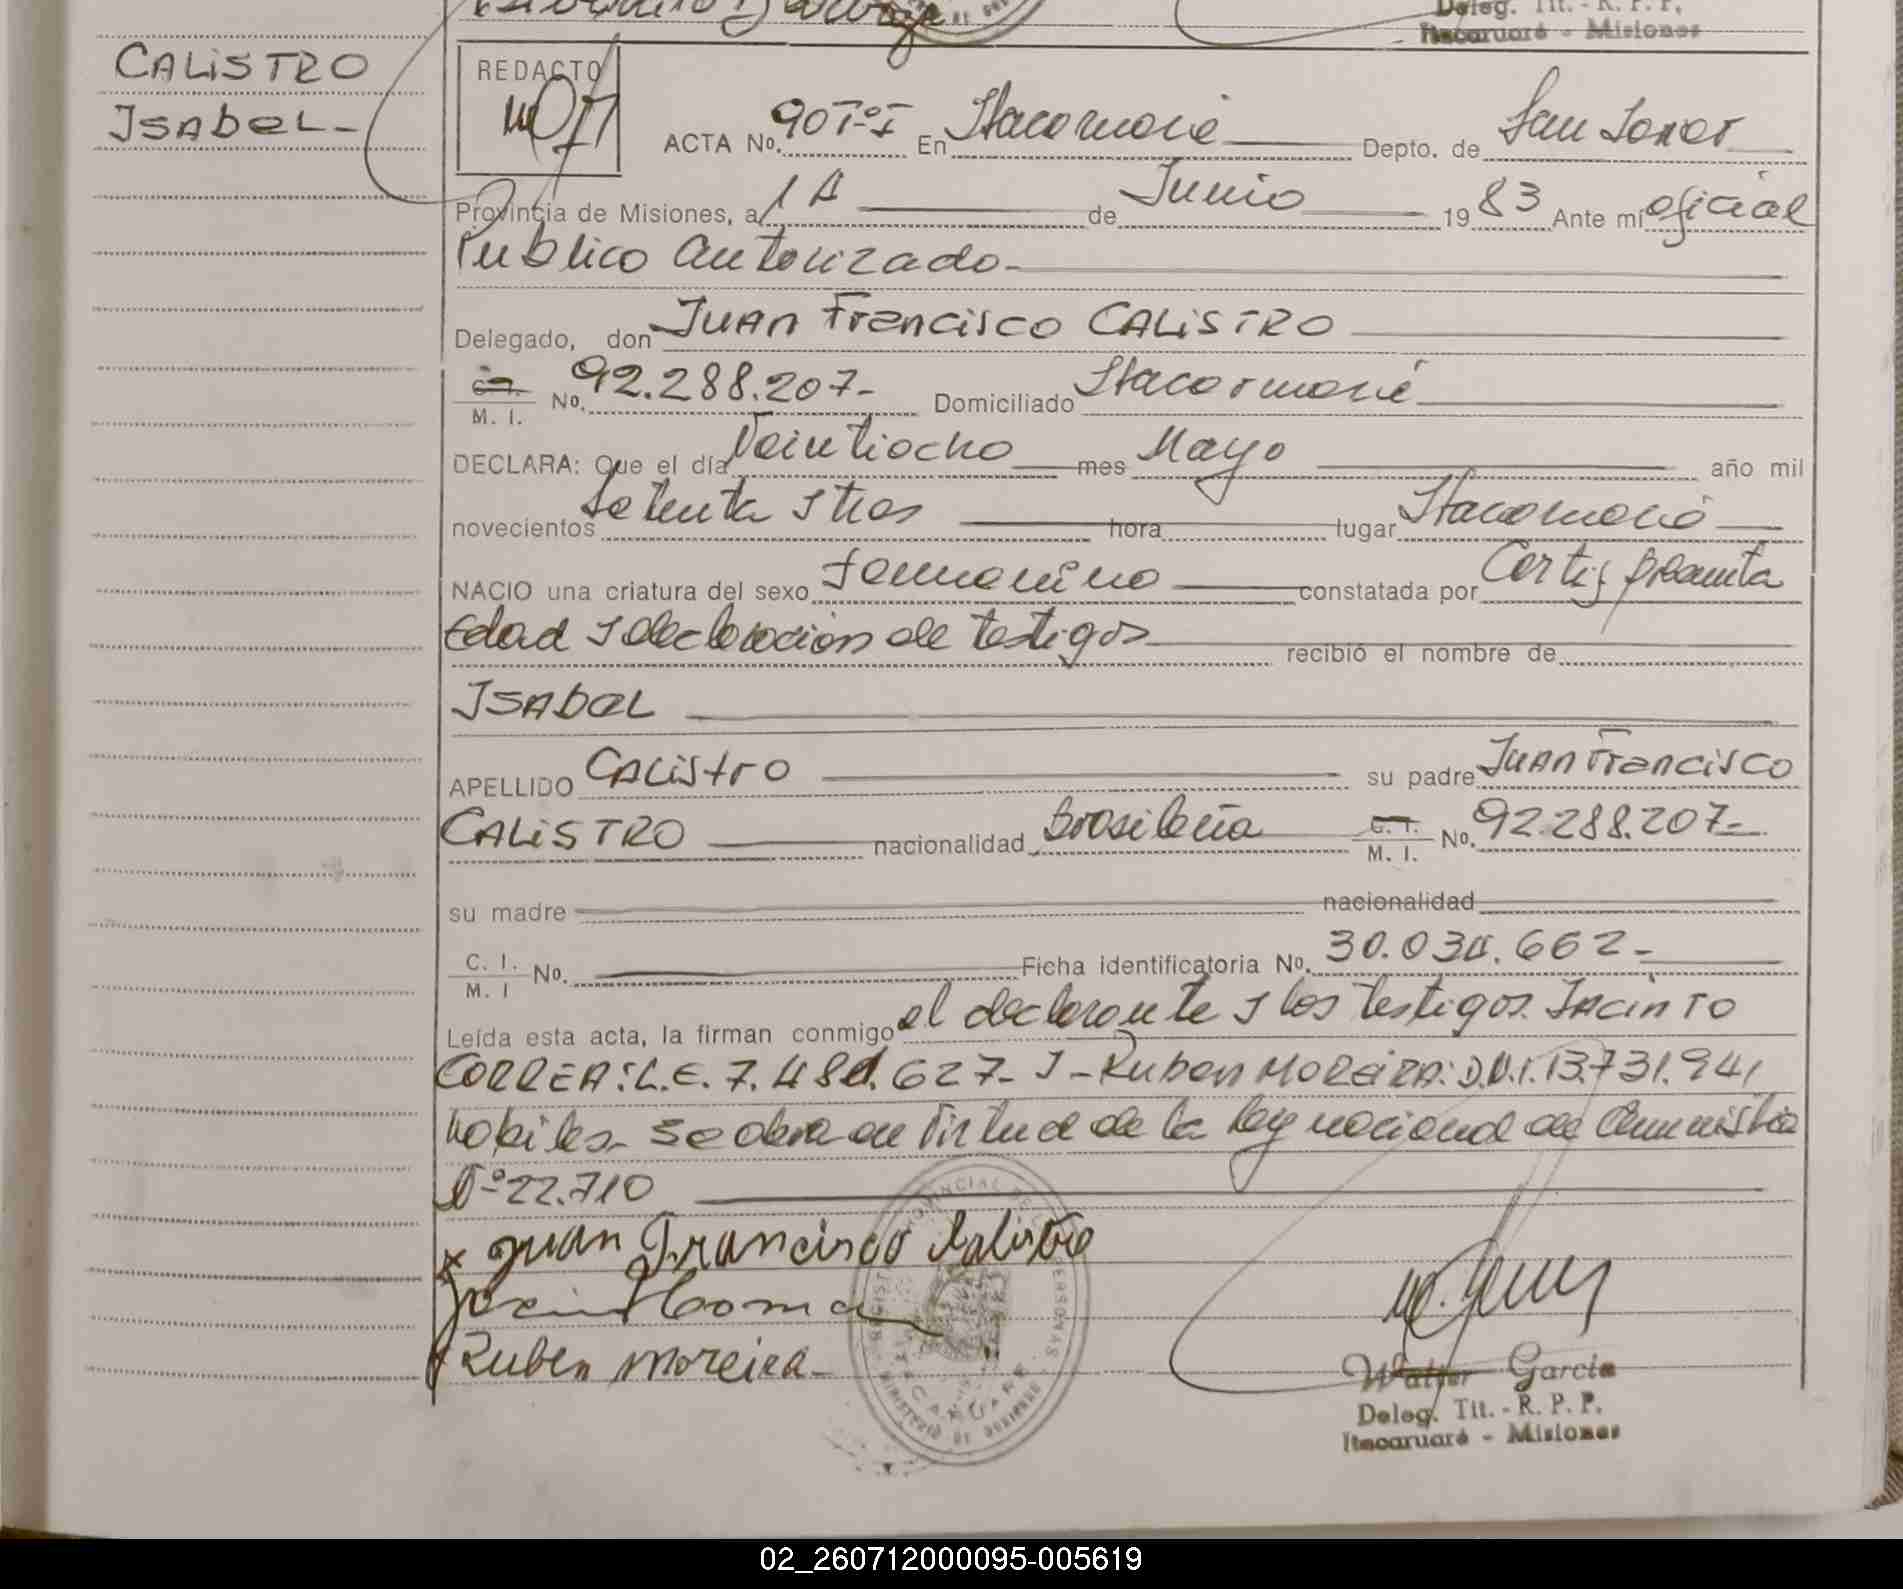 Deleg. Tit. - R. P. P.
Itacaruaré - Misiones
CALiSTRO
ISAbeL-
REDACTO
ACTA No. 90 Tº I En Itacaruaré Depto. de San Javier
Provincia de Misiones, a 14 de Junio 1983 Ante mi oficial
Publico Autorizado-
Delegado, don JUAN Francisco CALiSTRO
C.I.
M. I. No. 92.288.207- Domiciliado Itacaruaré
DECLARA: Que el día Veintiocho mes Mayo año mil
novecientos Setenta y tres hora lugar Itacaruaré
NACIO una criatura del sexo femenino constatada por Certif presunta
Edad y declaración de testigos recibió el nombre de
ISAbeL
APELLIDO CALiStrO su padre JUAN Francisco
CALiSTRO nacionalidad Brasileña C. I.
M. I. No. 92.288.207-
su madre nacionalidad
C. I.
M. I No. Ficha identificatoria No. 30.034.662-
Leída esta acta, la firman conmigo el declarante y los testigos. JAcinTO
CORREA: L.E. 7.484.627- y - Ruben MOREiRA: D.N.I. 13.731.941
habiles- Se obra en virtud de la ley nacional de Amnistia
Nº 22.710
x Juan Francisco Calistro
Ruben moreira-
REGISTRO PROVINCIAL DE LAS PERSONAS
ITACARUARE
MINISTERIO DE GOBIERNO
Walter Garcia
Deleg. Tit. - R. P. P.
Itacaruaré - Misiones
02_260712000095-005619